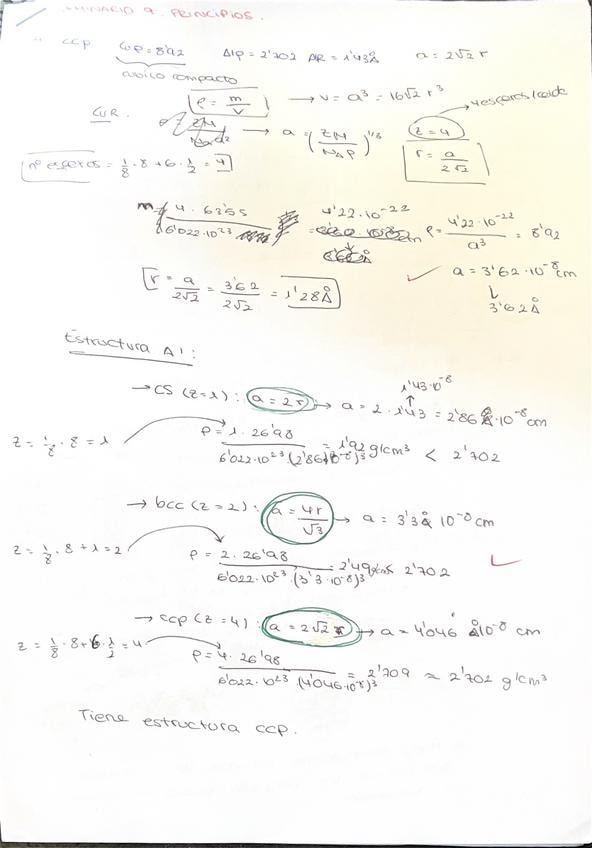 SEMINARIO 9. PRINCIPIOS.
ccp Cu ρ = 8'92 Al ρ = 2'702 AR = 1'43 Å a = 2√2 r
cúbico compacto
ρ = m/V → v = a³ = 16√2 r³
4 esferas/celda
Cu R. → a = (ZM/(N_A ρ))^1/3 Z = 4
r = a/(2√2)
nº esferas = 1/8 · 8 + 6 · 1/2 = 4
m = 4 · 63'55 / 6'022·10²³ = 4'22·10⁻²² ρ = 4'22·10⁻²² / a³ = 8'92
a = 3'62·10⁻⁸ cm
3'62 Å
r = a/(2√2) = 3'62/(2√2) = 1'28 Å
Estructura Al:
1'43·10⁻⁸
→ CS (z=1): a = 2r → a = 2 · 1'43 = 2'86 · 10⁻⁸ cm
z = 1/8 · 8 = 1
ρ = 1 · 26'98 / 6'022·10²³ · (2'86·10⁻⁸)³ = 1'92 g/cm³ < 2'702
→ bcc (z=2): a = 4r/√3 → a = 3'3 10⁻⁸ cm
z = 1/8 · 8 + 1 = 2
ρ = 2 · 26'98 / 6'022·10²³ · (3'3·10⁻⁸)³ = 2'49 g/cm³ < 2'702
→ ccp (z=4): a = 2√2 r → a = 4'046 10⁻⁸ cm
z = 1/8 · 8 + 6 · 1/2 = 4
ρ = 4 · 26'98 / 6'022·10²³ (4'046·10⁻⁸)³ = 2'709 ≈ 2'702 g/cm³
Tiene estructura ccp.